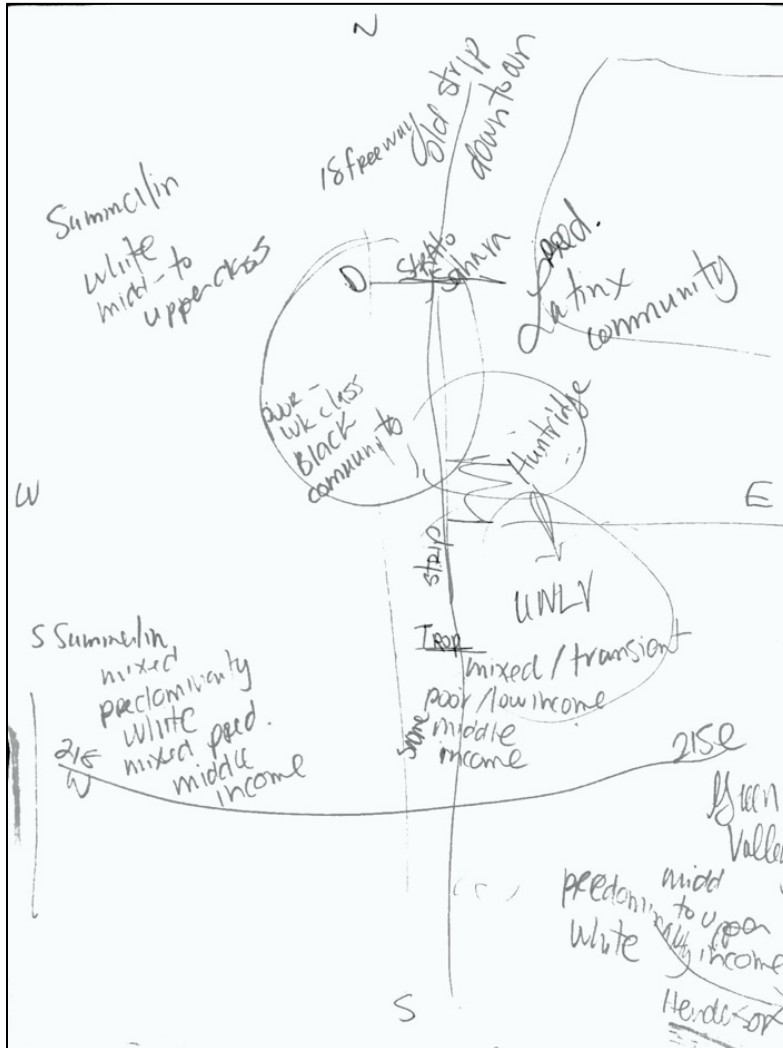 N
old strip
downtown
15 freeway
Summerlin
white
midd-to
upperclass
D
Strato
Sahara
pred.
Latinx
community
poor-
wk class
Black
community
Huntridge
W
E
STRIP
UNLV
Trop
mixed/transient
poor/low income
middle
income
Same
S Summerlin
mixed
predominantly
white
mixed pred.
middle
income
215
W
215 E
Green
Valley
predominantly
white
midd
to upper
income
Henderson
S